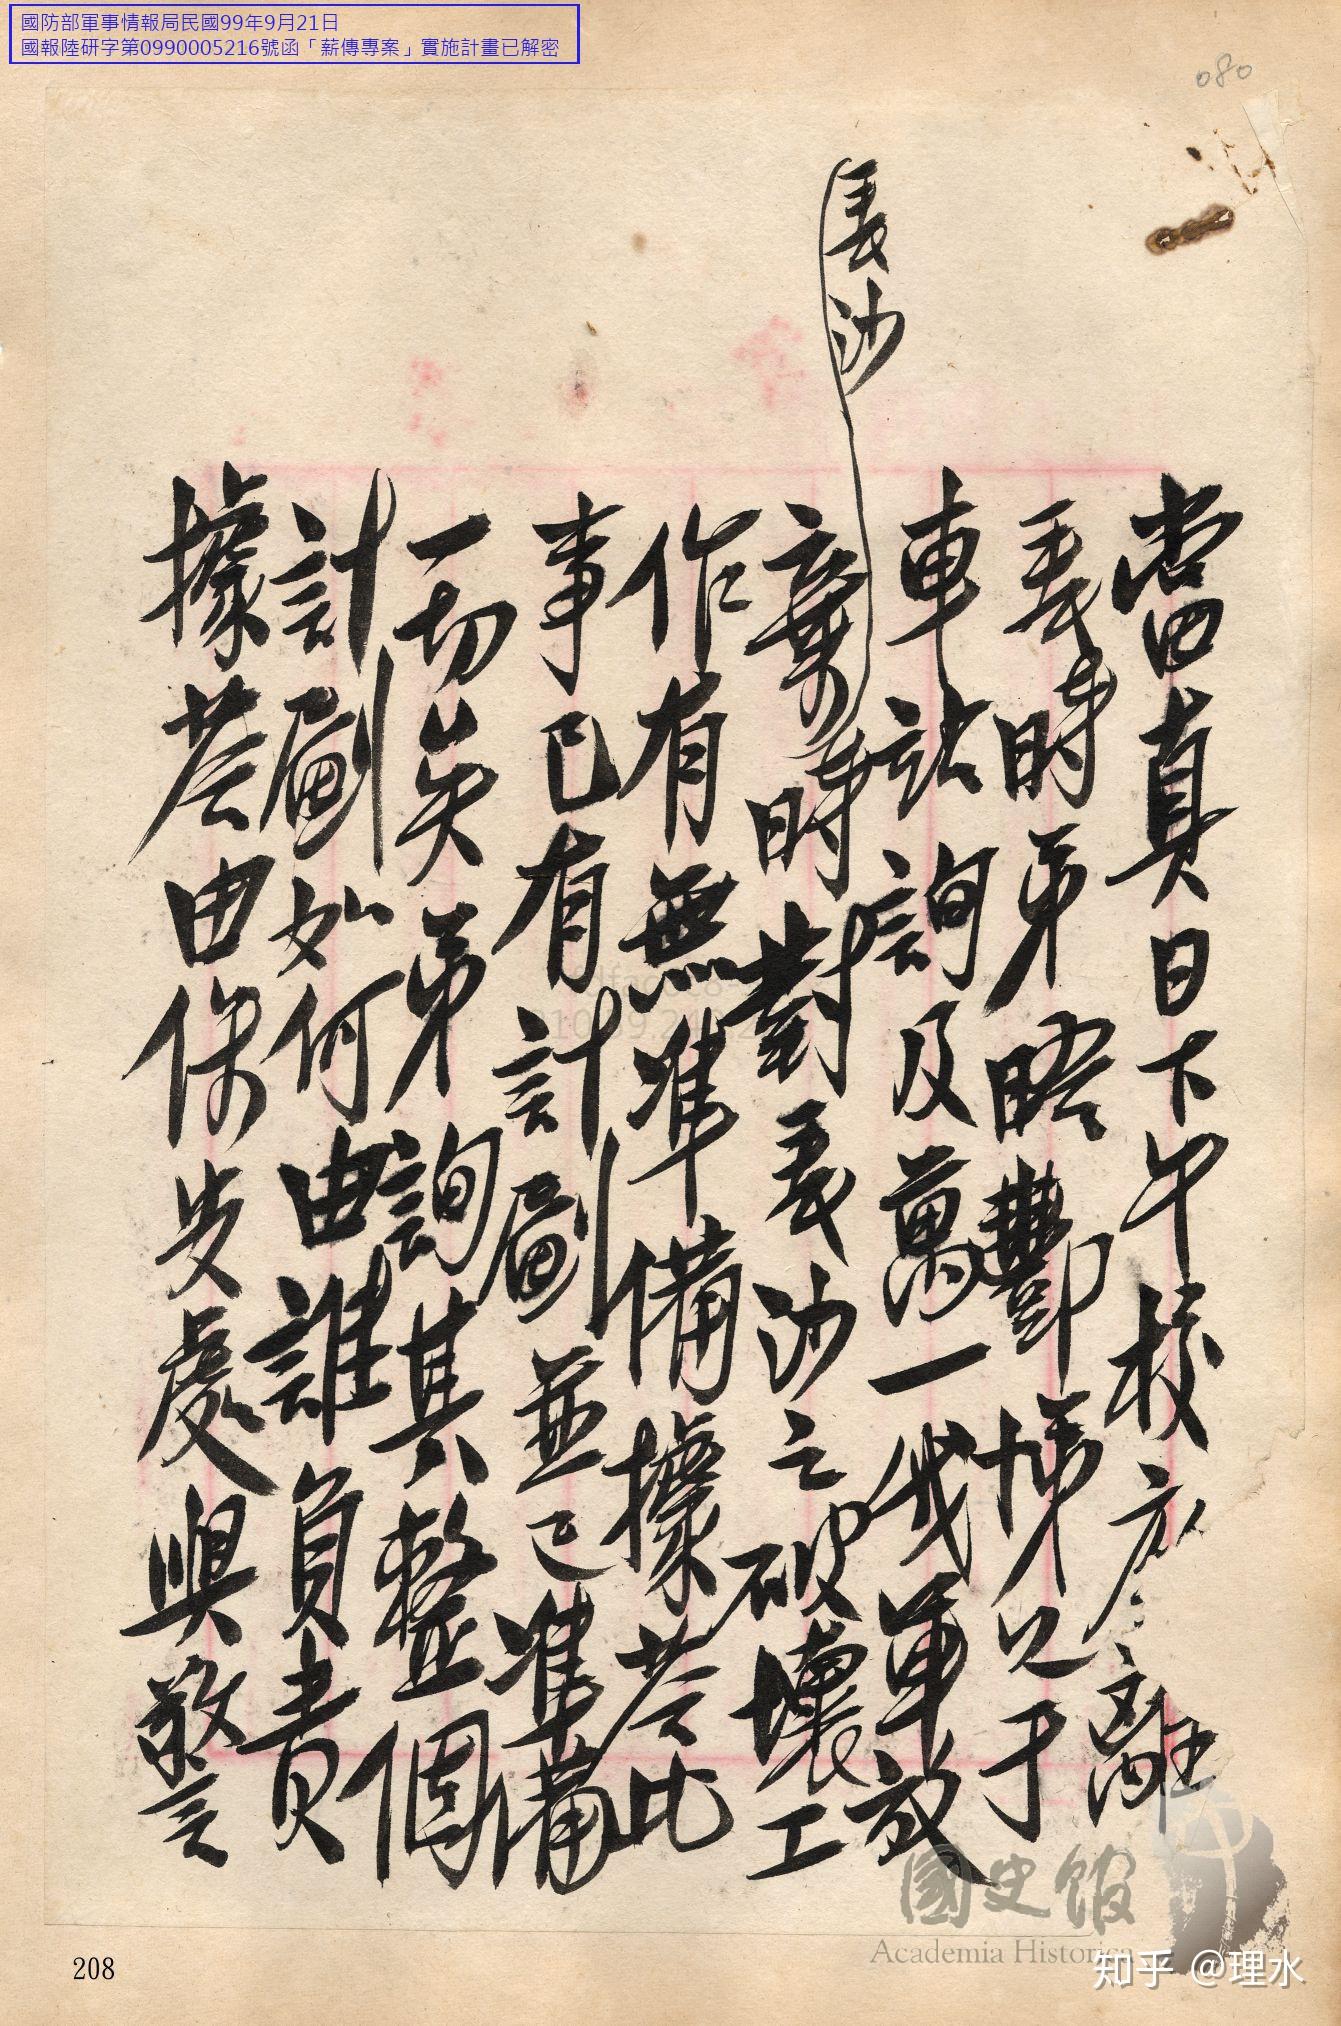 國防部軍事情報局民國99年9月21日
國報陸研字第0990005216號函「薪傳專案」實施計畫已解密
080
長沙
當真日下午校座離
長時弟晤酆悌兄于
車站詢及萬一我軍放
棄時對長沙之破壞工
作有無準備據答此
事已有計劃並已準備
一切矣弟詢其整個
計劃如何由誰負責
據答由保安處與警
208
國史館
Academia Historica
知乎 @理水